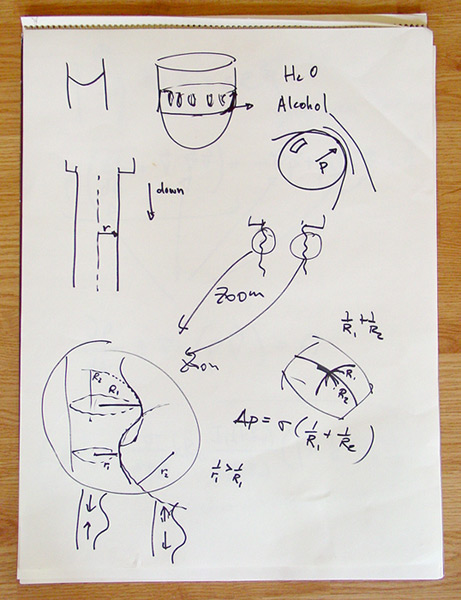 H2O
Alcohol
P
down
r
Zoom
Zoom
1/R1 + 1/R2
R1
R2
R2
R1
Δp = σ ( 1/R1 + 1/R2 )
r1
r2
1/r1 > 1/R1